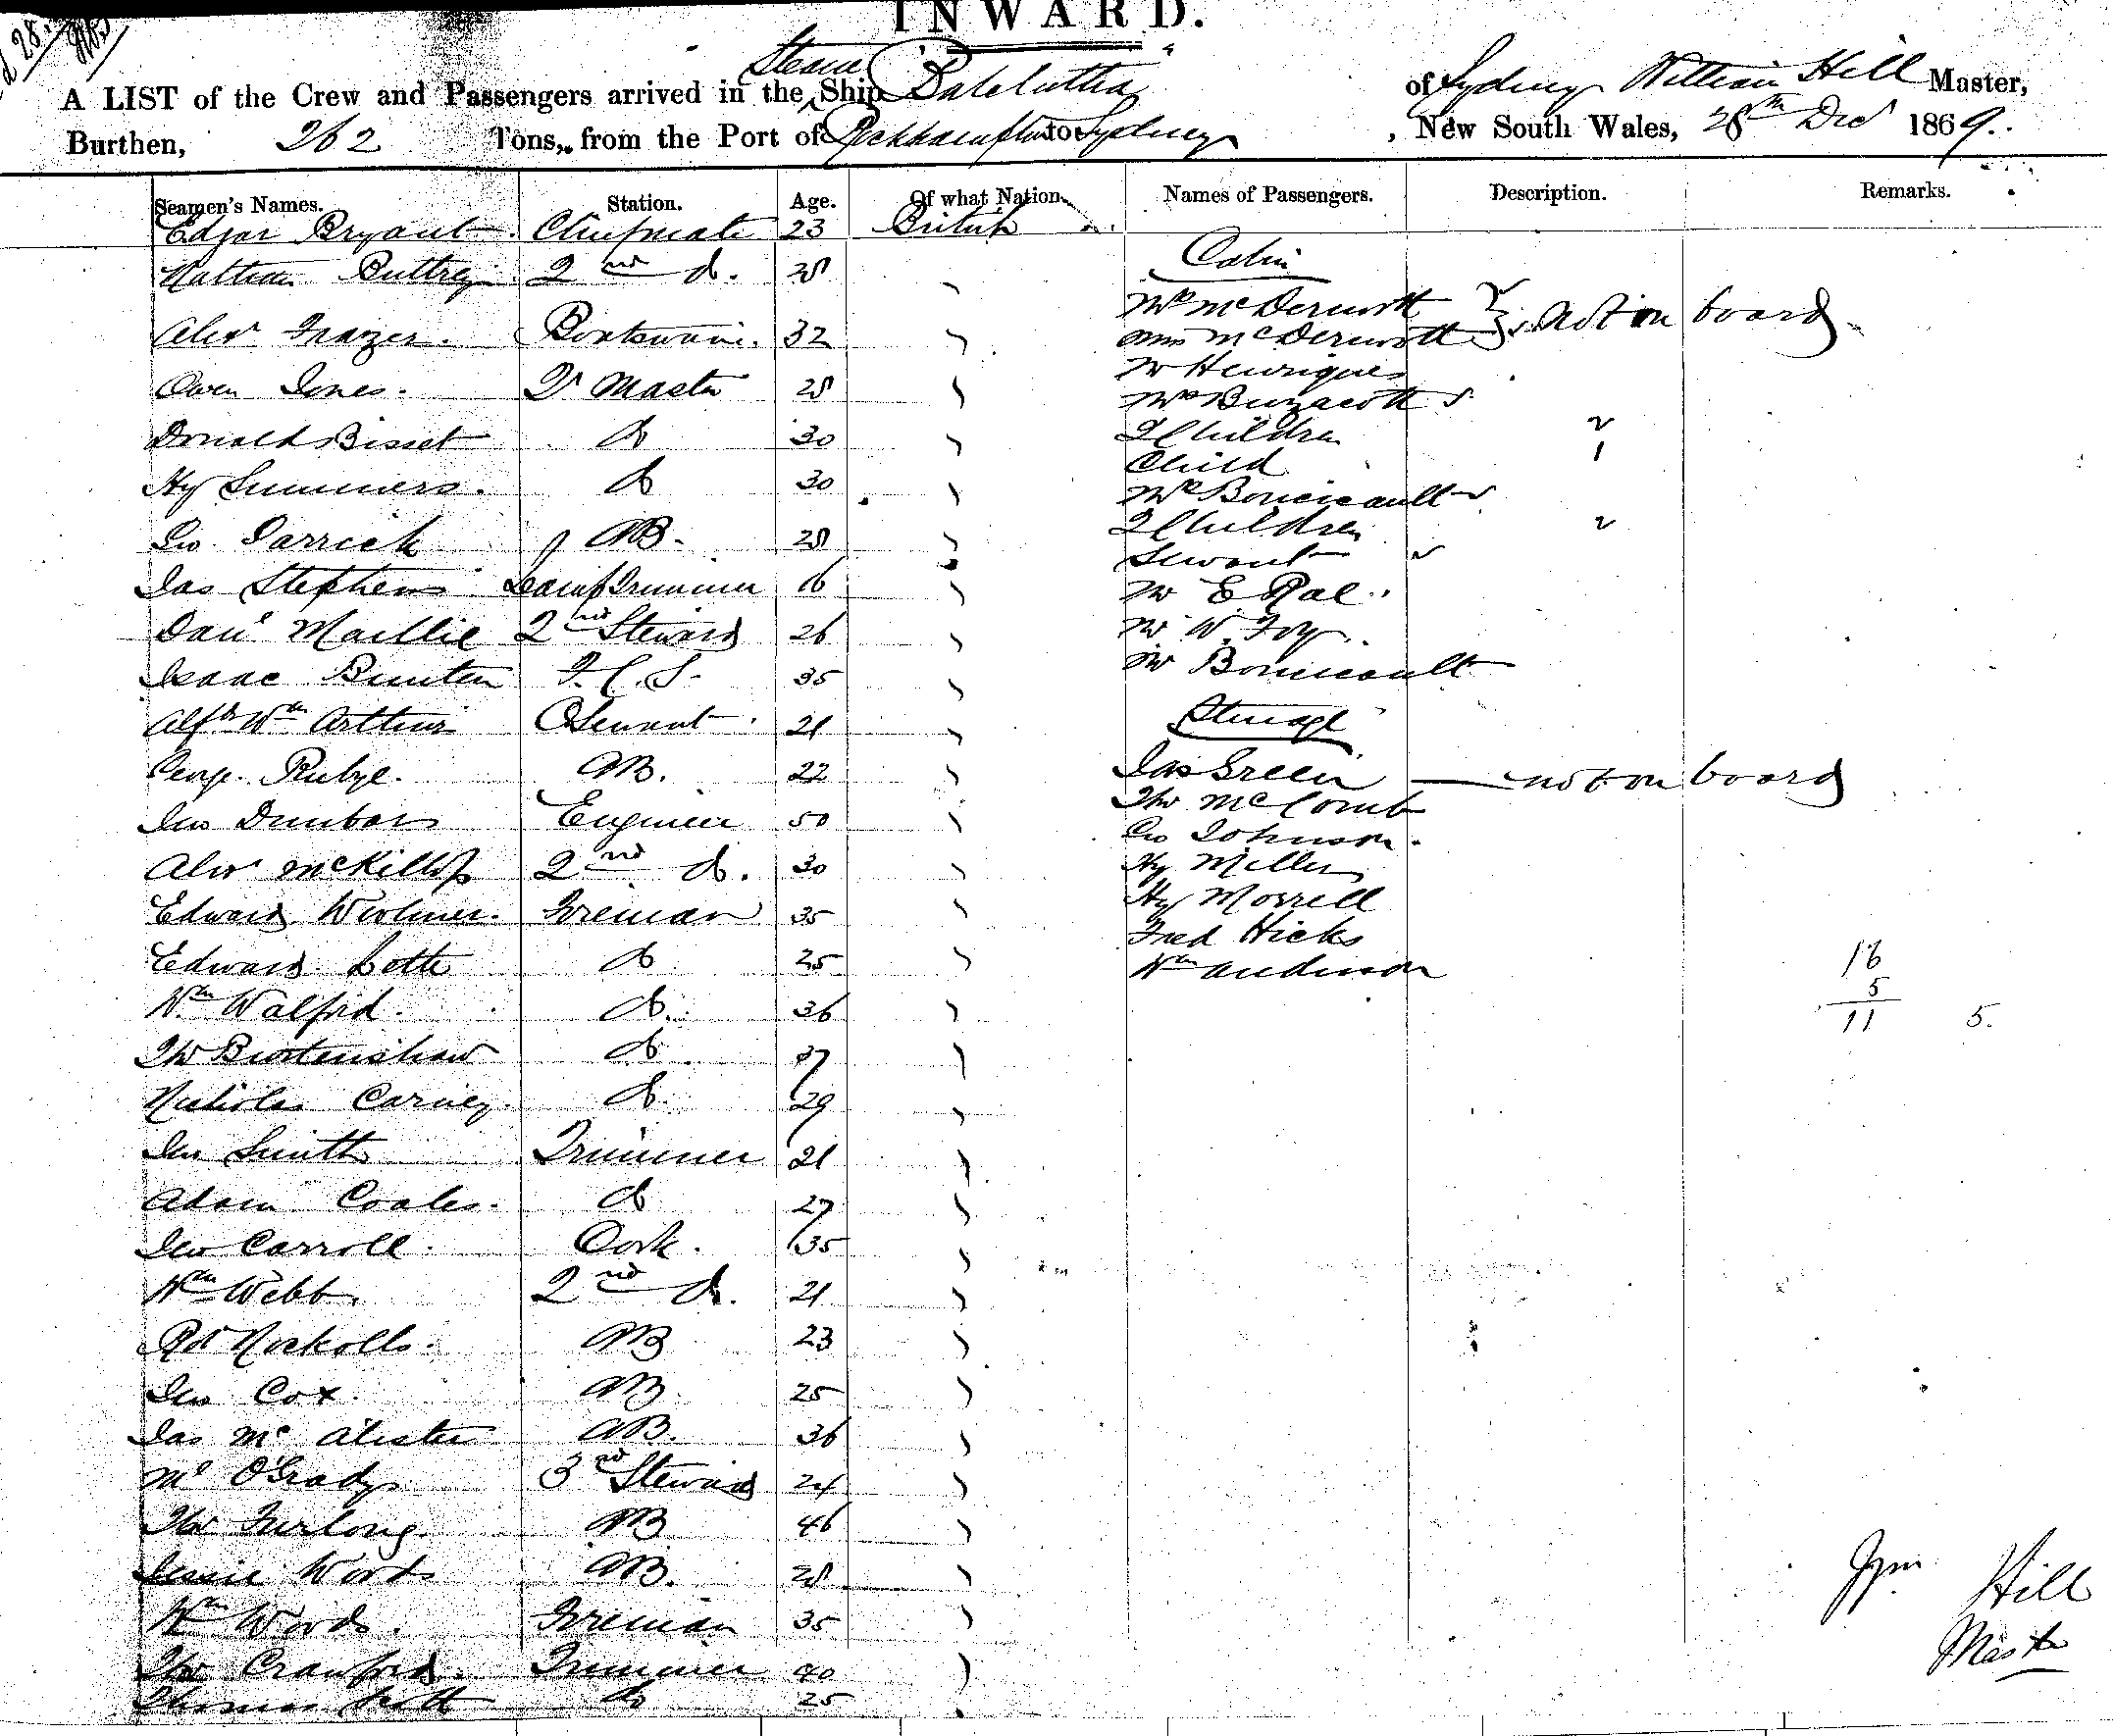 INWARD.
A LIST of the Crew and Passengers arrived in the Steam Ship Balclutha of Sydney William Hill Master,
Burthen, 262 Tons, from the Port of Rockhampton to Sydney, New South Wales, 28th Dec 1869.
Seamen's Names. Station. Age. Of what Nation. Names of Passengers. Description. Remarks.
Edgar Bryant Chiefmate 23 British
Cabin
Nathan Buttrey 2nd do. 28
Mr McDermott
Alexr Frazer. Boatswain. 32
Mrs McDermott not on board
Mr Henriques
Owen Jones. Qr Master 28
Mrs Buzacott
Donald Bisset do 30
2 Children 2
Child 1
Hy Summers. do 30
Mrs Boucicault
2 Children 2
Geo. Garrick AB. 28
Servant
Jas Stephens Lamptrimmer 16
Mr E Rae
Danl Maillie 2nd Steward 26
Mr W. Foy
Isaac Bunten F.C.S. 35
Mr Boucicault
Alfd Wm Arthur O Servant 21
Steerage
George AB. 22
Jas Green not on board
Jno Dunbar Engineer 50
Thos McComb
Geo Johnson.
Alexr McKillop 2nd do. 30
Hy Miller
Edward Fireman 35
Hy Morrell
Fred Hicks
Edward do 25
Wm Anderson
16
5
11 5.
Wm Walford. do. 36
Thos Burtenshaw do 37
Nicholas Carney. do. 29
Jno Smith Trimmer 21
Adam Coates. do 27
Jno Carroll. Cook. 35
Wm Webb. 2nd do. 21
Robt Nockolls. AB 23
Jno Cox. AB. 25
Jas McAlister AB. 36
Ml O'Grady 3rd Steward 24
Thos Furlong. AB 46
Jessie Woods AB. 28
Wm Woods. Fireman 35
Thos Crawford. Trimmer 40
Thomas Scott do 25
Wm Hill
Master